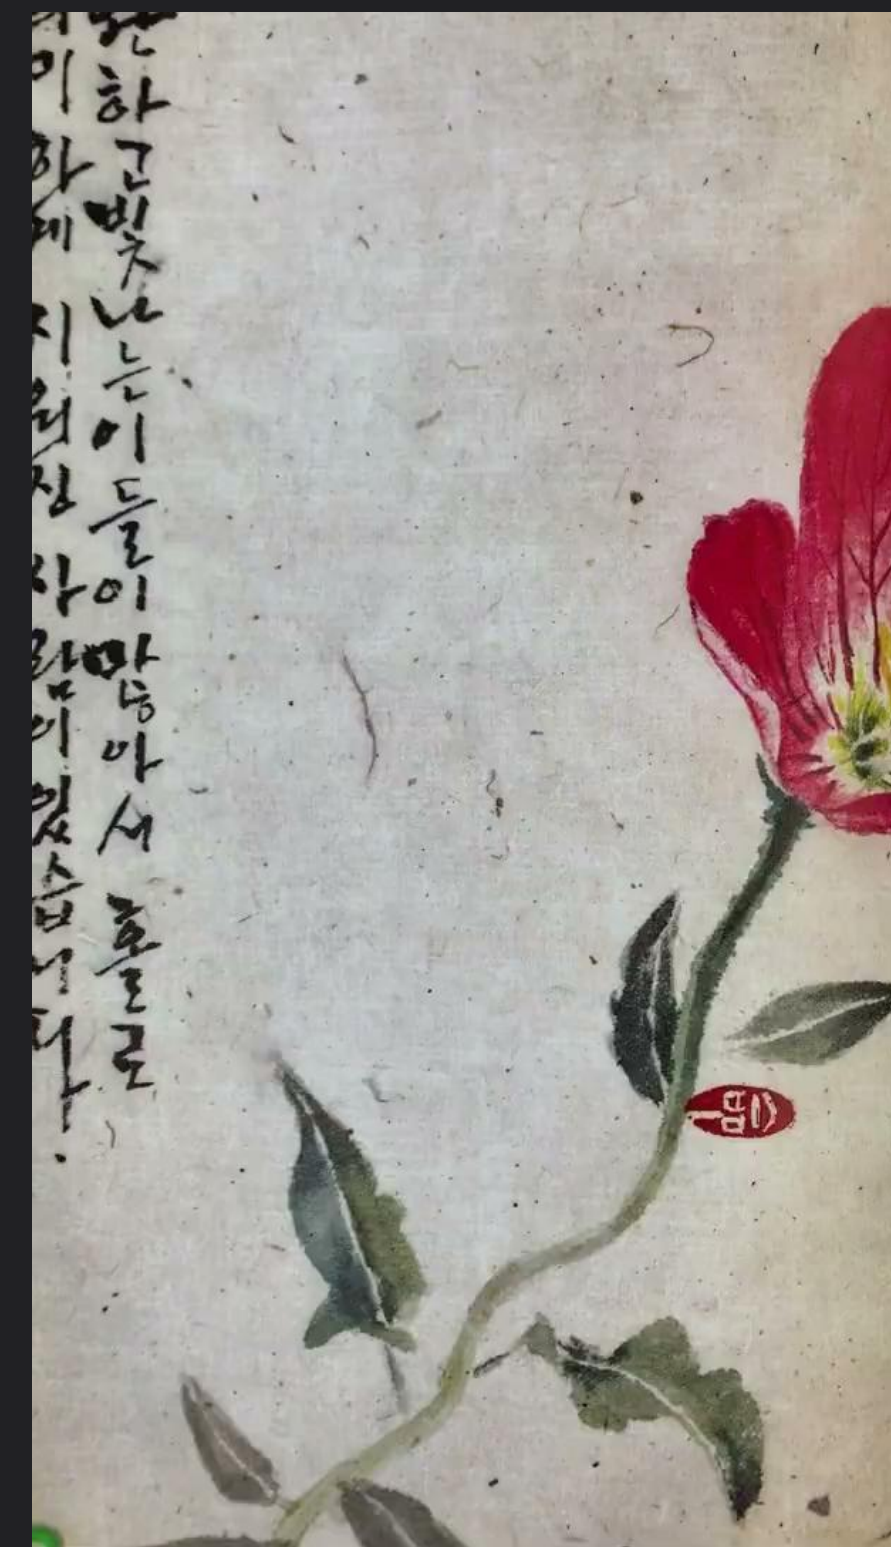 하고빛나는이들이 많아서 홀로
하게 지워진 사람이있습니다.